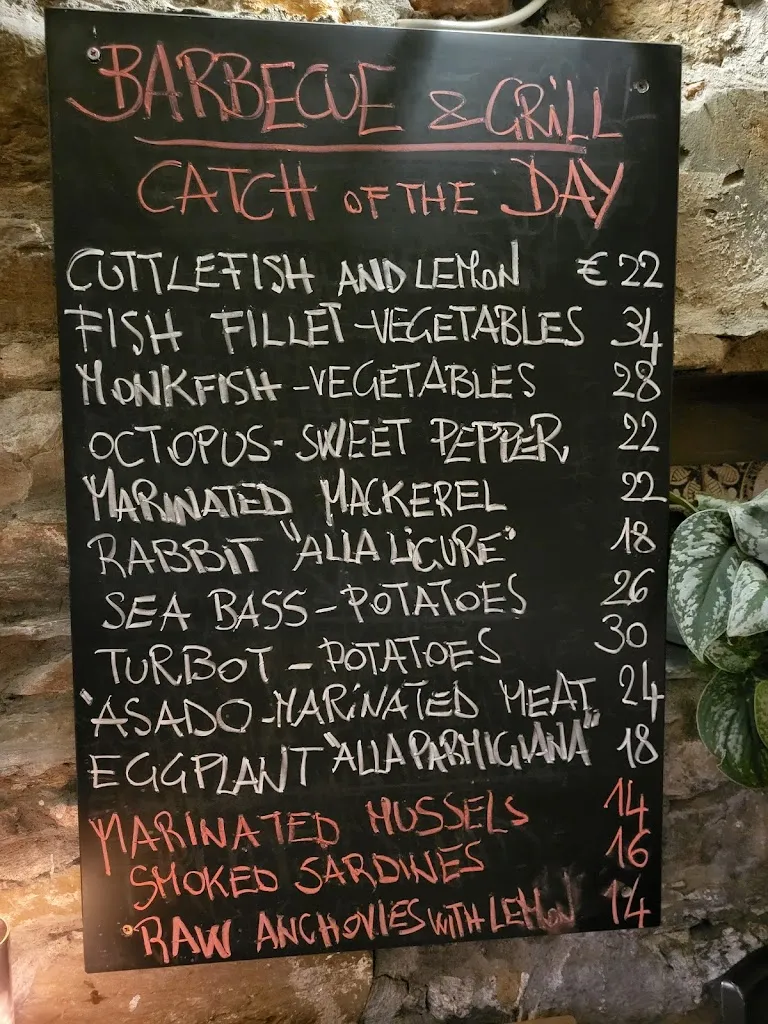 BARBECUE & GRILL
CATCH OF THE DAY
CUTTLEFISH AND LEMON € 22
FISH FILLET - VEGETABLES 34
MONKFISH - VEGETABLES 28
OCTOPUS - SWEET PEPPER 22
MARINATED MACKEREL 22
RABBIT "ALLA LIGURE" 18
SEA BASS - POTATOES 26
TURBOT - POTATOES 30
"ASADO - MARINATED MEAT 24
EGGPLANT "ALLA PARMIGIANA" 18
MARINATED MUSSELS 14
SMOKED SARDINES 16
RAW ANCHOVIES WITH LEMON 14